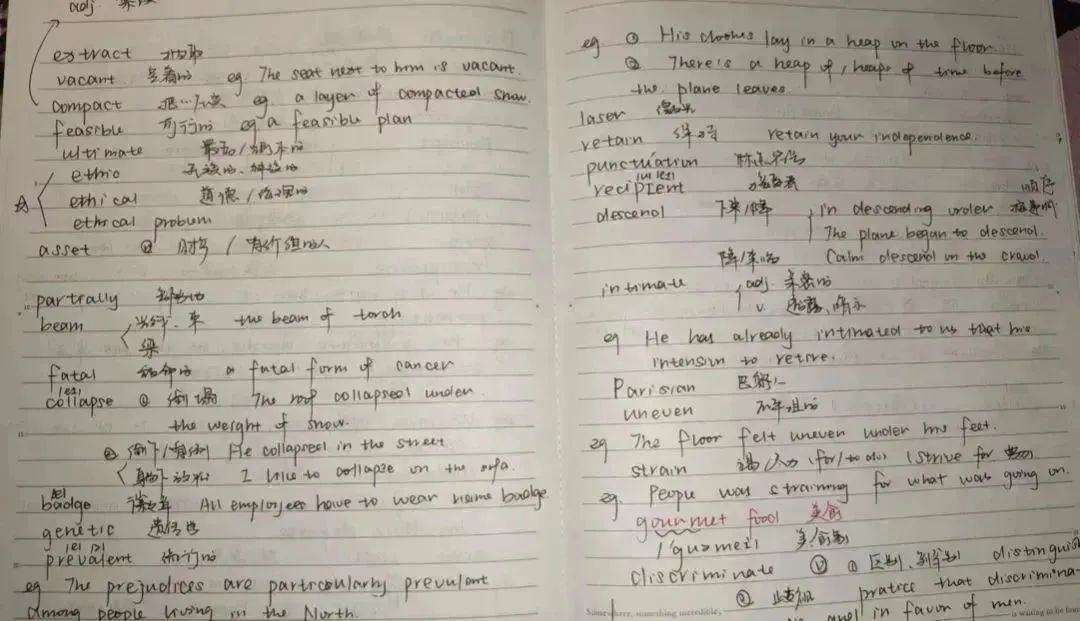 adj.
extract 提取
vacant 空着的 eg. The seat next to him is vacant.
compact eg a layer of compacted snow.
feasible 可行的 eg a feasible plan
ultimate 最高/根本的
ethnic 民族的、种族的
ethical 道德/伦理的
ethical probum
asset ① 财产 / 有价值的人
partrally 部分地
beam 光线、束 the beam of torch
梁
fatal 致命的 a fatal form of cancer
collapse ① 倒塌 The roof collapsed under
the weight of snow.
② 倒下/ He collapsed in the street
躺下放松 I like to collapse on the sofa.
badge 徽章 All employees have to wear name badge
genetic 遗传
prevalent 流行的
eg The prejudices are particularly prevalent
among people living in the North.
eg. ① His clothes lay in a heap on the floor.
② There's a heap of / heaps of time before
the plane leaves.
laser 激光
retain 保持 retain your independence.
punctuation 标点符号
recipient 接受者
descend 下来/降 in descending order 顺序
The plane began to descend.
降/来临 Calm descend on the crowd.
intimate adj. 亲密的
v. 透露、暗示
eg He has already intimated to us that his
intensiun to retire.
Parisian 巴黎人
uneven 不平坦的
eg The floor felt uneven under his feet.
strain (for/to do) (strive for
eg. People was straining for what was going on.
gourmet food 美食
/'guəmei/ 美食家
discriminate ⓥ ① 区别、辨别 distinguish
② 歧视 pratice that discrimina-
in favor of men.
Somewhere, something incredible,
is waiting to be found